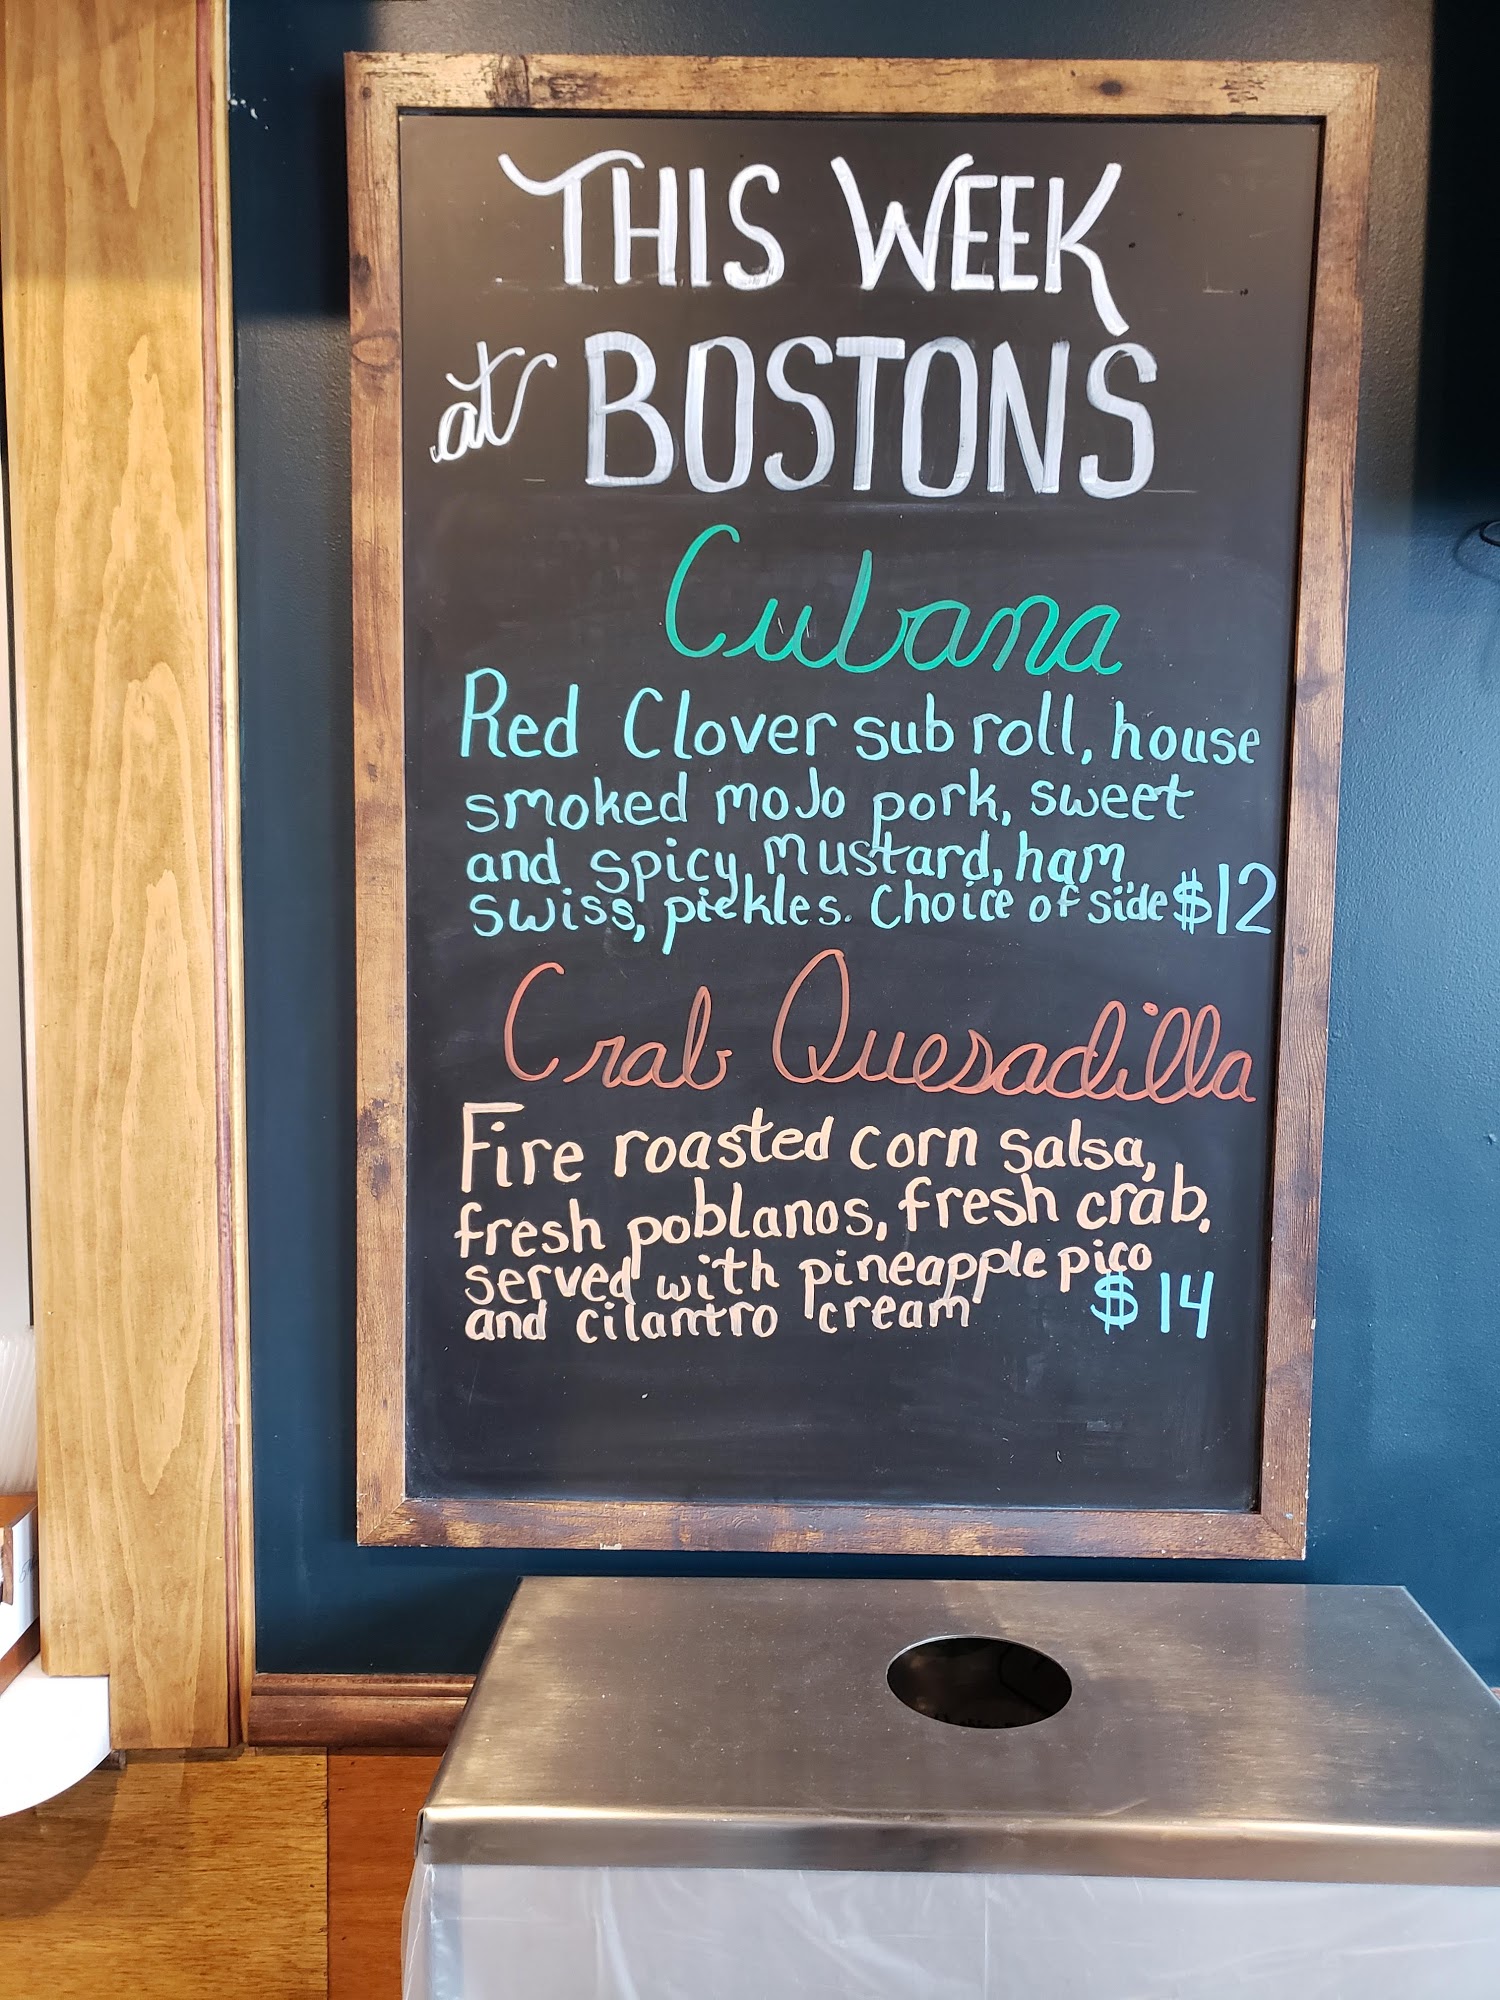 THIS WEEK
at BOSTONS
Cubana
Red Clover sub roll, house
smoked moJo pork, sweet
and spicy mustard, ham,
swiss, pickles. Choice of side $12
Crab Quesadilla
Fire roasted corn salsa,
fresh poblanos, fresh crab,
served with pineapple pico
and cilantro cream $14